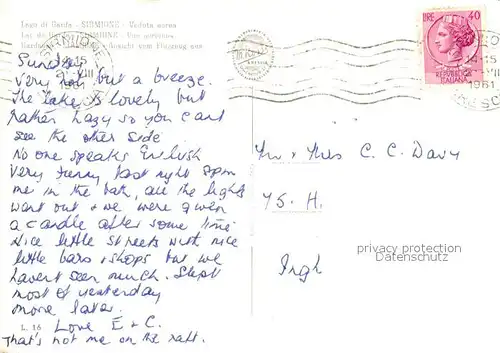 Lago di Garda - SIRMIONE - Veduta aerea
Lac de Garde - SIRMIONE - Vue aérienne
Sunday
Very hot but a breeze.
The lake is lovely but
rather hazy so you cant
see the other side
No one speaks English
Very funny last night 9pm
me in the bath, all the lights
went out & we were given
a candle after some time
Nice little streets with nice
little bars & shops but we
havent seen much. Slept
most of yesterday
more later.
L. 16 Love E + C.
That's not me on the raft.
SIRMIONE
14-15
1961
LIRE 40
REPUBBLICA
ITALIANA
14-15
VIII
1961
Mr & Mrs C. C. Davy
75. H.
Ingh
privacy protection
Datenschutz